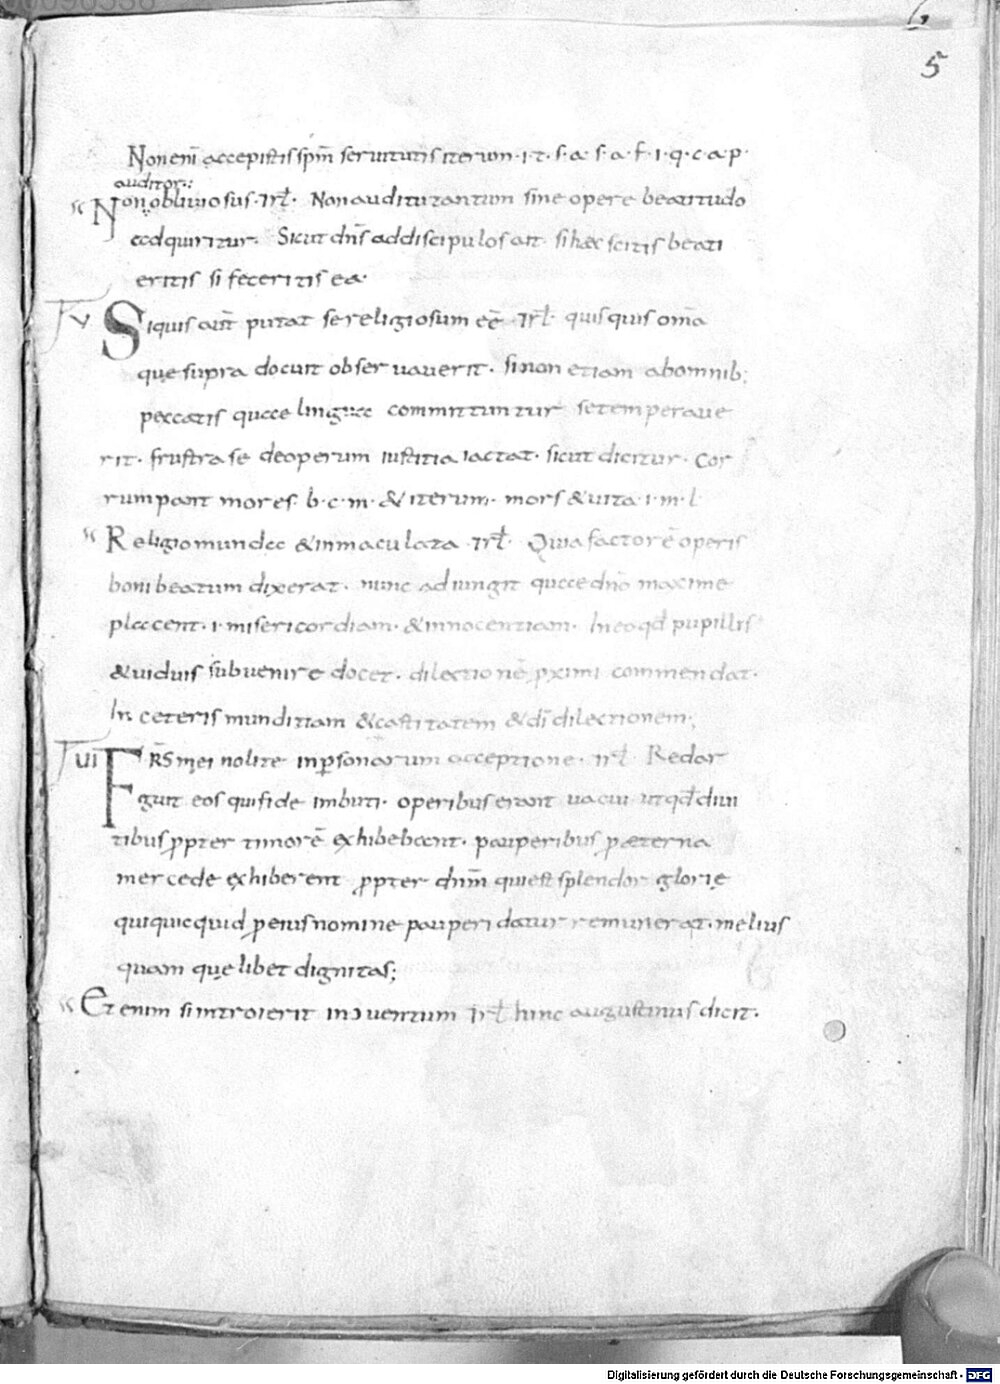 5
Non enī accepistis sp̄m servitutis iterum · i · t · s · a · s · a · f · i · q · c · a · p ·
auditor:
Non obliviosus · Irł · Non auditu tantum sine opere beatitudo
adquiritur · Sicut dn̄s ad discipulos ait si hæc scitis beati
eritis si feceritis ea ·
V Siquis aut̄ putat se religiosum eē · Irł · quisquis om̄a
quę supra docuit observaverit · si non etiam ab omnib;
peccatis quae linguae committuntur se temperave
rit · frustra se de operum iustitia iactat · sicut dicitur · Cor
rumpant mores · b · c · m · & iterum · mors & vita · i · m · l
Religio munda & inmaculata · Irł · Quia factorē operis
boni beatum dixerat · nunc adiungit quae dn̄o maxime
placent · i · misericordiam · & innocentiam · In eo qđ pupillis
& viduis subvenire docet · dilectionē p̱ximi commendat ·
In ceteris munditiam & castitatem & dī dilectionem;
VI FR̄S mei nolite in p̱sonarum acceptione · Irł Redar
guit eos qui fide imbuti · operibus erant vacui ut qđ divi
tibus p̱pter timorē exhibebant · pauperibus p̱ æterna
mercede exhiberent p̱pter dn̄m qui est splendor glorię
qui quicquid p̱ eius nomine pauperi datur remunerat · melius
quam quę libet dignitas;
Etenim si introierit in ɔventum Irł hinc augustinus dicit ·
Digitalisierung gefördert durch die Deutsche Forschungsgemeinschaft - DFG